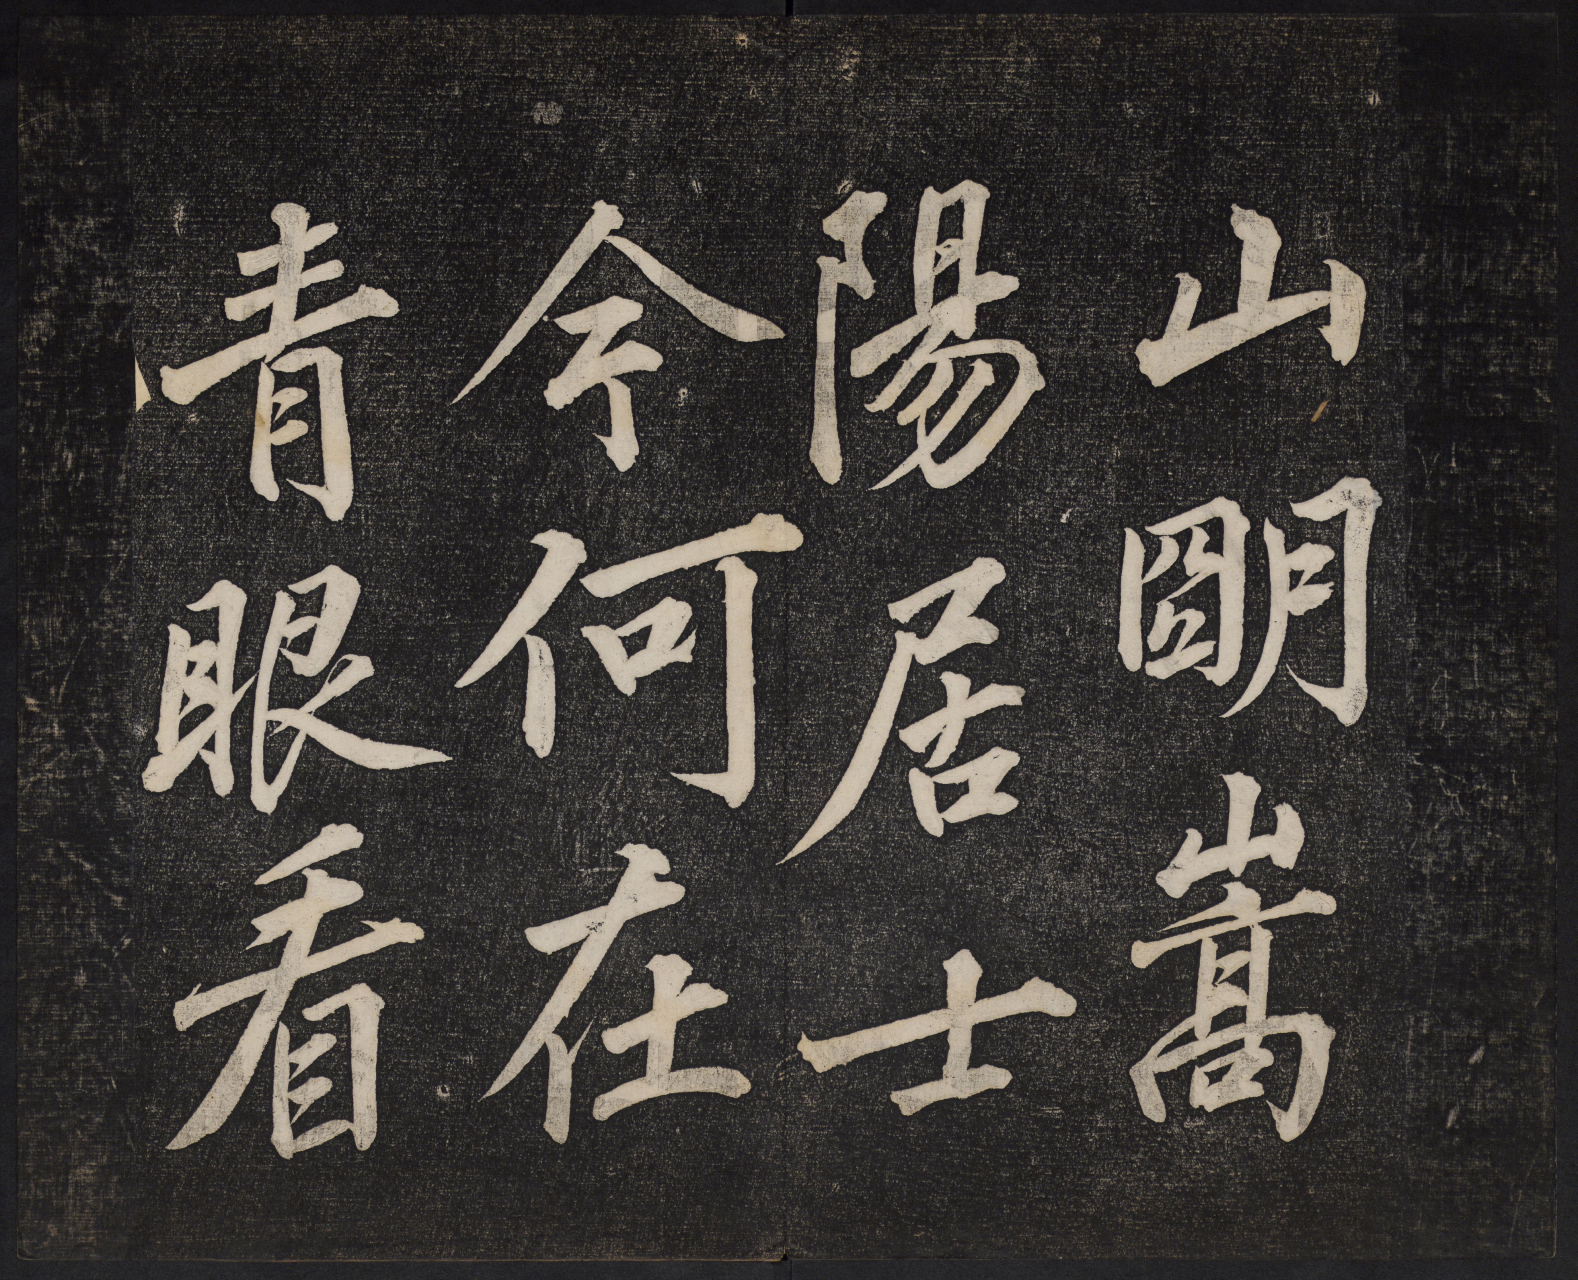 山朙嵩
陽居士
今何在
青眼看